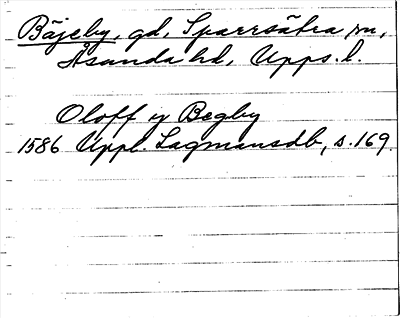 Bäjeby, gd, Sparrsätra sn,
Åsunda hd, Upps. l.
Oloff y Begby
1586 Uppl. Lagmansdb, s. 169.